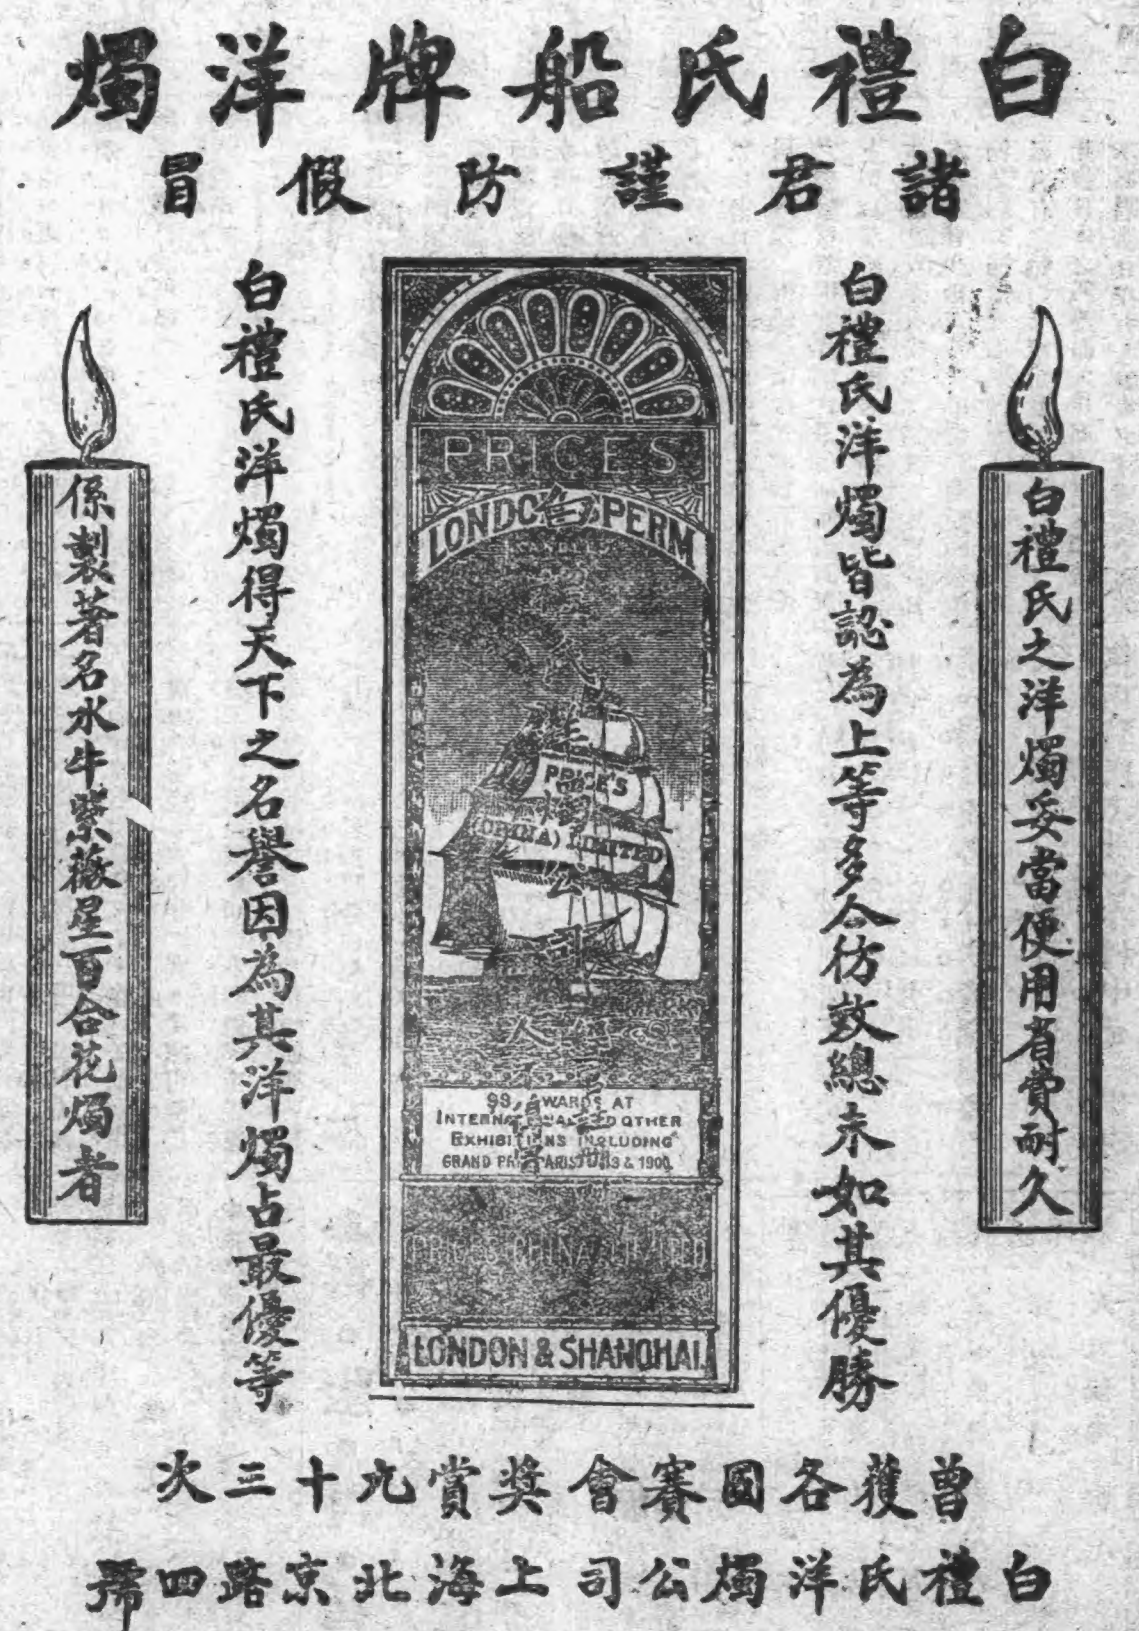 白禮氏船牌洋燭
諸君謹防假冒
白禮氏之洋燭妥當便用省費耐久
白禮氏洋燭皆認為上等多人仿效總未如其優勝
PRICES
LONDON SPERM
PRICE'S
(CHINA) LIMITED
公司
99 AWARDS AT
INTERNATIONAL AND OTHER
EXHIBITIONS INCLUDING
GRAND PRIX PARIS & 1900.
PRICES CHINA LIMITED
LONDON & SHANGHAI.
白禮氏洋燭得天下之名譽因為其洋燭占最優等
係製著名水牛紫薇星百合花燭者
曾獲各國賽會獎賞九十三次
白禮氏洋燭公司上海北京路四號